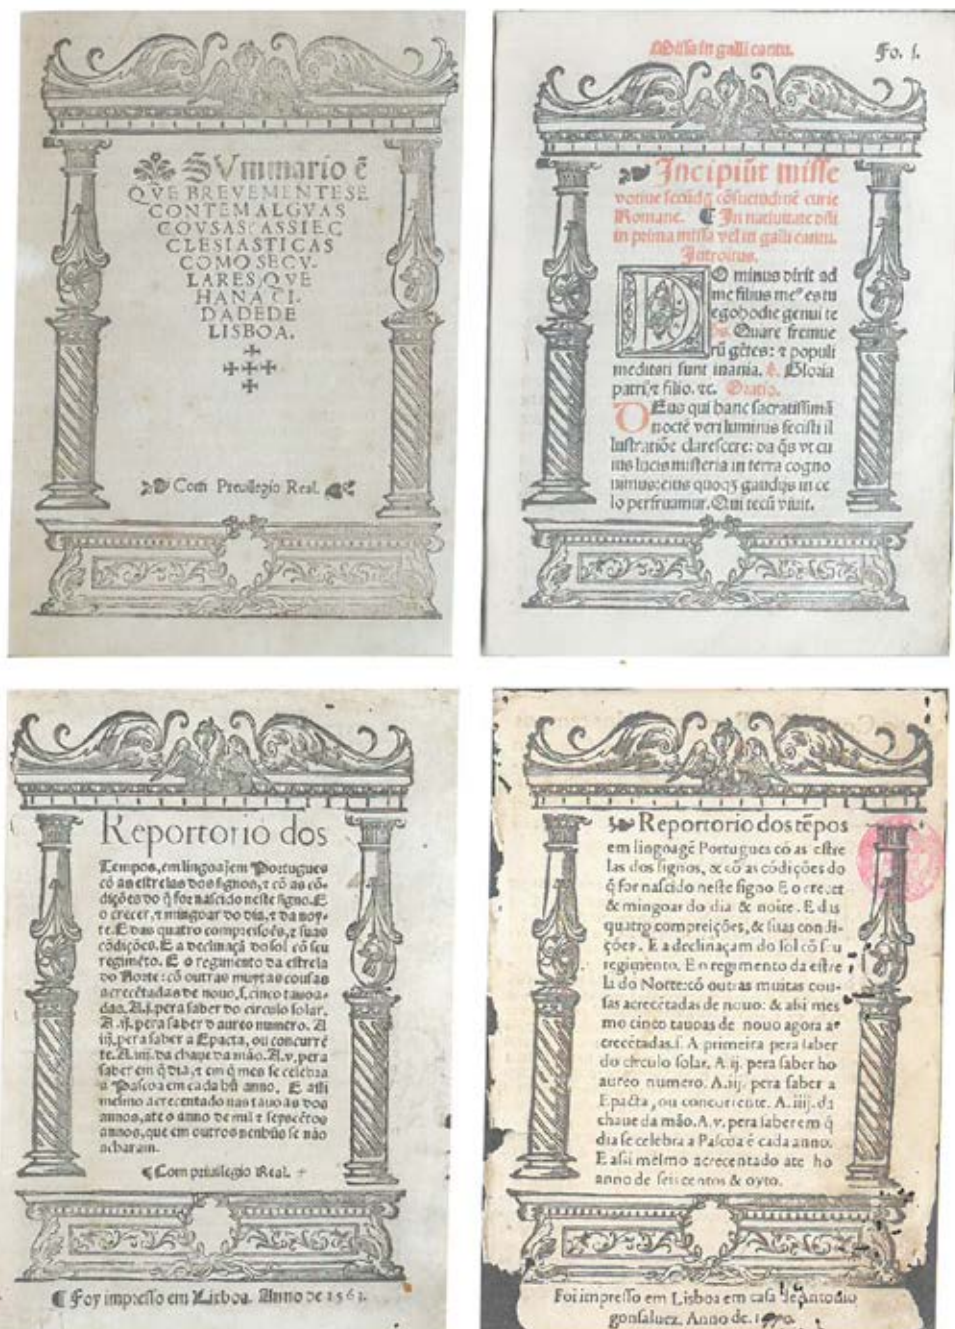 SVmmario ē
QVE BREVEMENTE SE
CONTEM ALGVAS
COVSAS ASSI EC
CLESIASTICAS
COMO SECV-
LARES, QVE
HA NA CI-
DADE DE
LISBOA.
Com Preuilegio Real.
Missa in galli cantu.
Fo. j.
Incipiūt misse
votiue secūdū cōsuetudinē curie
Romane. ¶ In natiuitate dñi
in prima missa vel in galli cantu.
Introitus.
DOminus dixit ad
me filius meꝰ es tu
ego hodie genui te
ps. Quare fremue
rūt gētes: ⁊ populi
meditati sunt inania. ꝟ. Gloria
patri, ⁊ filio. ⁊c. Oratio.
DEus qui hanc sacratissimā
noctē veri luminis fecisti il
lustratiōe clarescere: da q̄s vt cu
ius lucis misteria in terra cogno
uimus: eius quoqꝫ gaudijs in ce
lo perfruamur. Qui tecū viuit.
Reportorio dos
Tempos, em lingoajem Portugues
cō as estrelas dos signos, ⁊ cō as cō-
dições do q̄ for nascido neste signo. E
o crecer, ⁊ mingoar do dia, ⁊ da noy-
te. E das quatro compreisões, ⁊ suas
cōdições. E a declinaçā do sol cō seu
regimēto. E o regimento da estrela
do Norte: cō outras muytas cousas
acrecētadas de nouo, s. cinco tauoa-
das. A.j. pera saber do circulo solar.
A.ij. pera saber o aureo numero. A
iij. pera saber a Epacta, ou concurrē
te. A.iiij. da chaue da mão. A.v. pera
saber em q̄ dia, ⁊ em q̄ mes se celebra
a Pascoa em cada hū anno. E assi
mesmo acrecentado nas tauoas dos
annos, ate o anno de mil ⁊ sepscētos
annos, que em outros nenhūs se não
acharam.
¶ Com priuilegio Real.
¶ Foy impresso em Lixboa. Anno de 1563.
Reportorio dos tēpos
em lingoagē Portugues cō as estre
las dos signos, & cō as cōdições do
q̄ for nascido neste signo E o crecer
& mingoar do dia & noite. E das
quatro compreições, & suas condi-
ções. E a declinaçam do sol cō seu
regimento. E o regimento da estre
la do Norte: cō outras muitas cou-
sas acrecētadas de nouo: & assi mes
mo cinco tauoas de nouo agora a-
crecētadas. s. A primeira pera saber
do circulo solar. A.ij. pera saber ho
aureo numero. A.iij. pera saber a
Epacta, ou concurrente. A.iiij. da
chaue da mão. A.v. pera saber em q̄
dia se celebra a Pascoa ē cada anno.
E assi mesmo acrecentado ate ho
anno de seis centos & oyto.
Foi impresso em Lisboa em casa de Antonio
gonsaluez. Anno de. 1570.